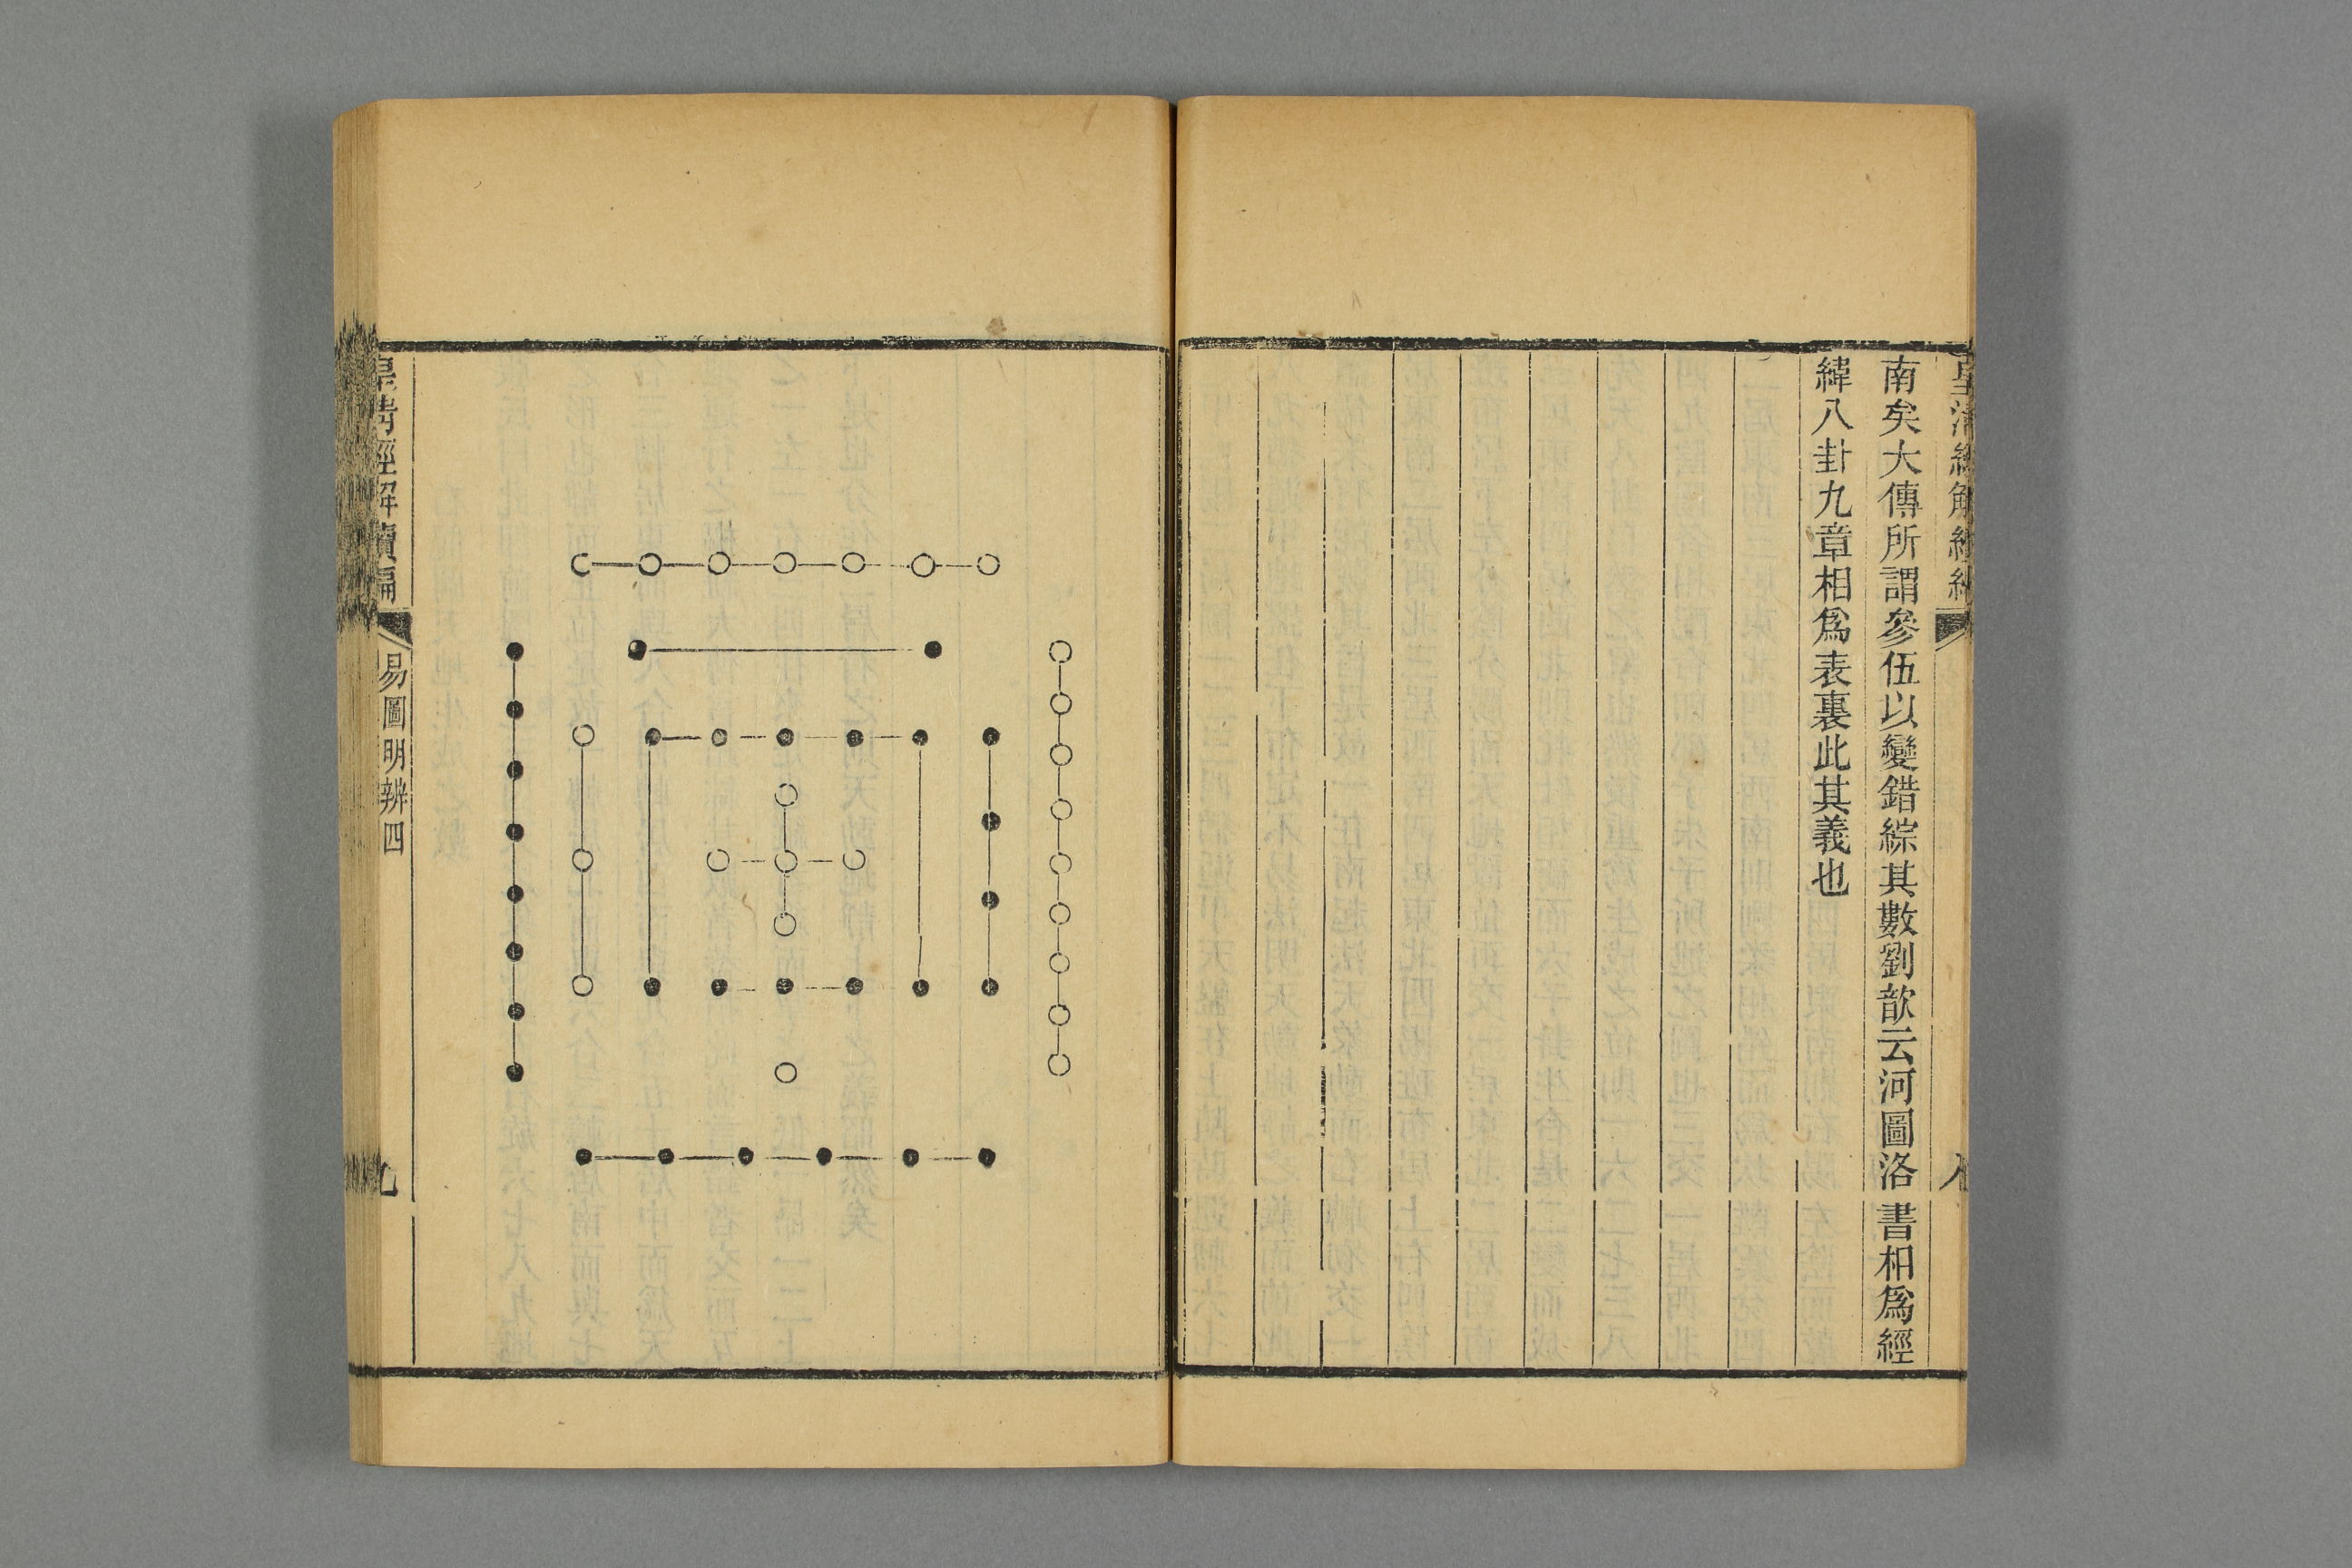 皇清經解續編
八
南矣大傳所謂參伍以變錯綜其數劉歆云河圖洛書相爲經
緯八卦九章相爲表裏此其義也
皇清經解續編
易圖明辨四
九